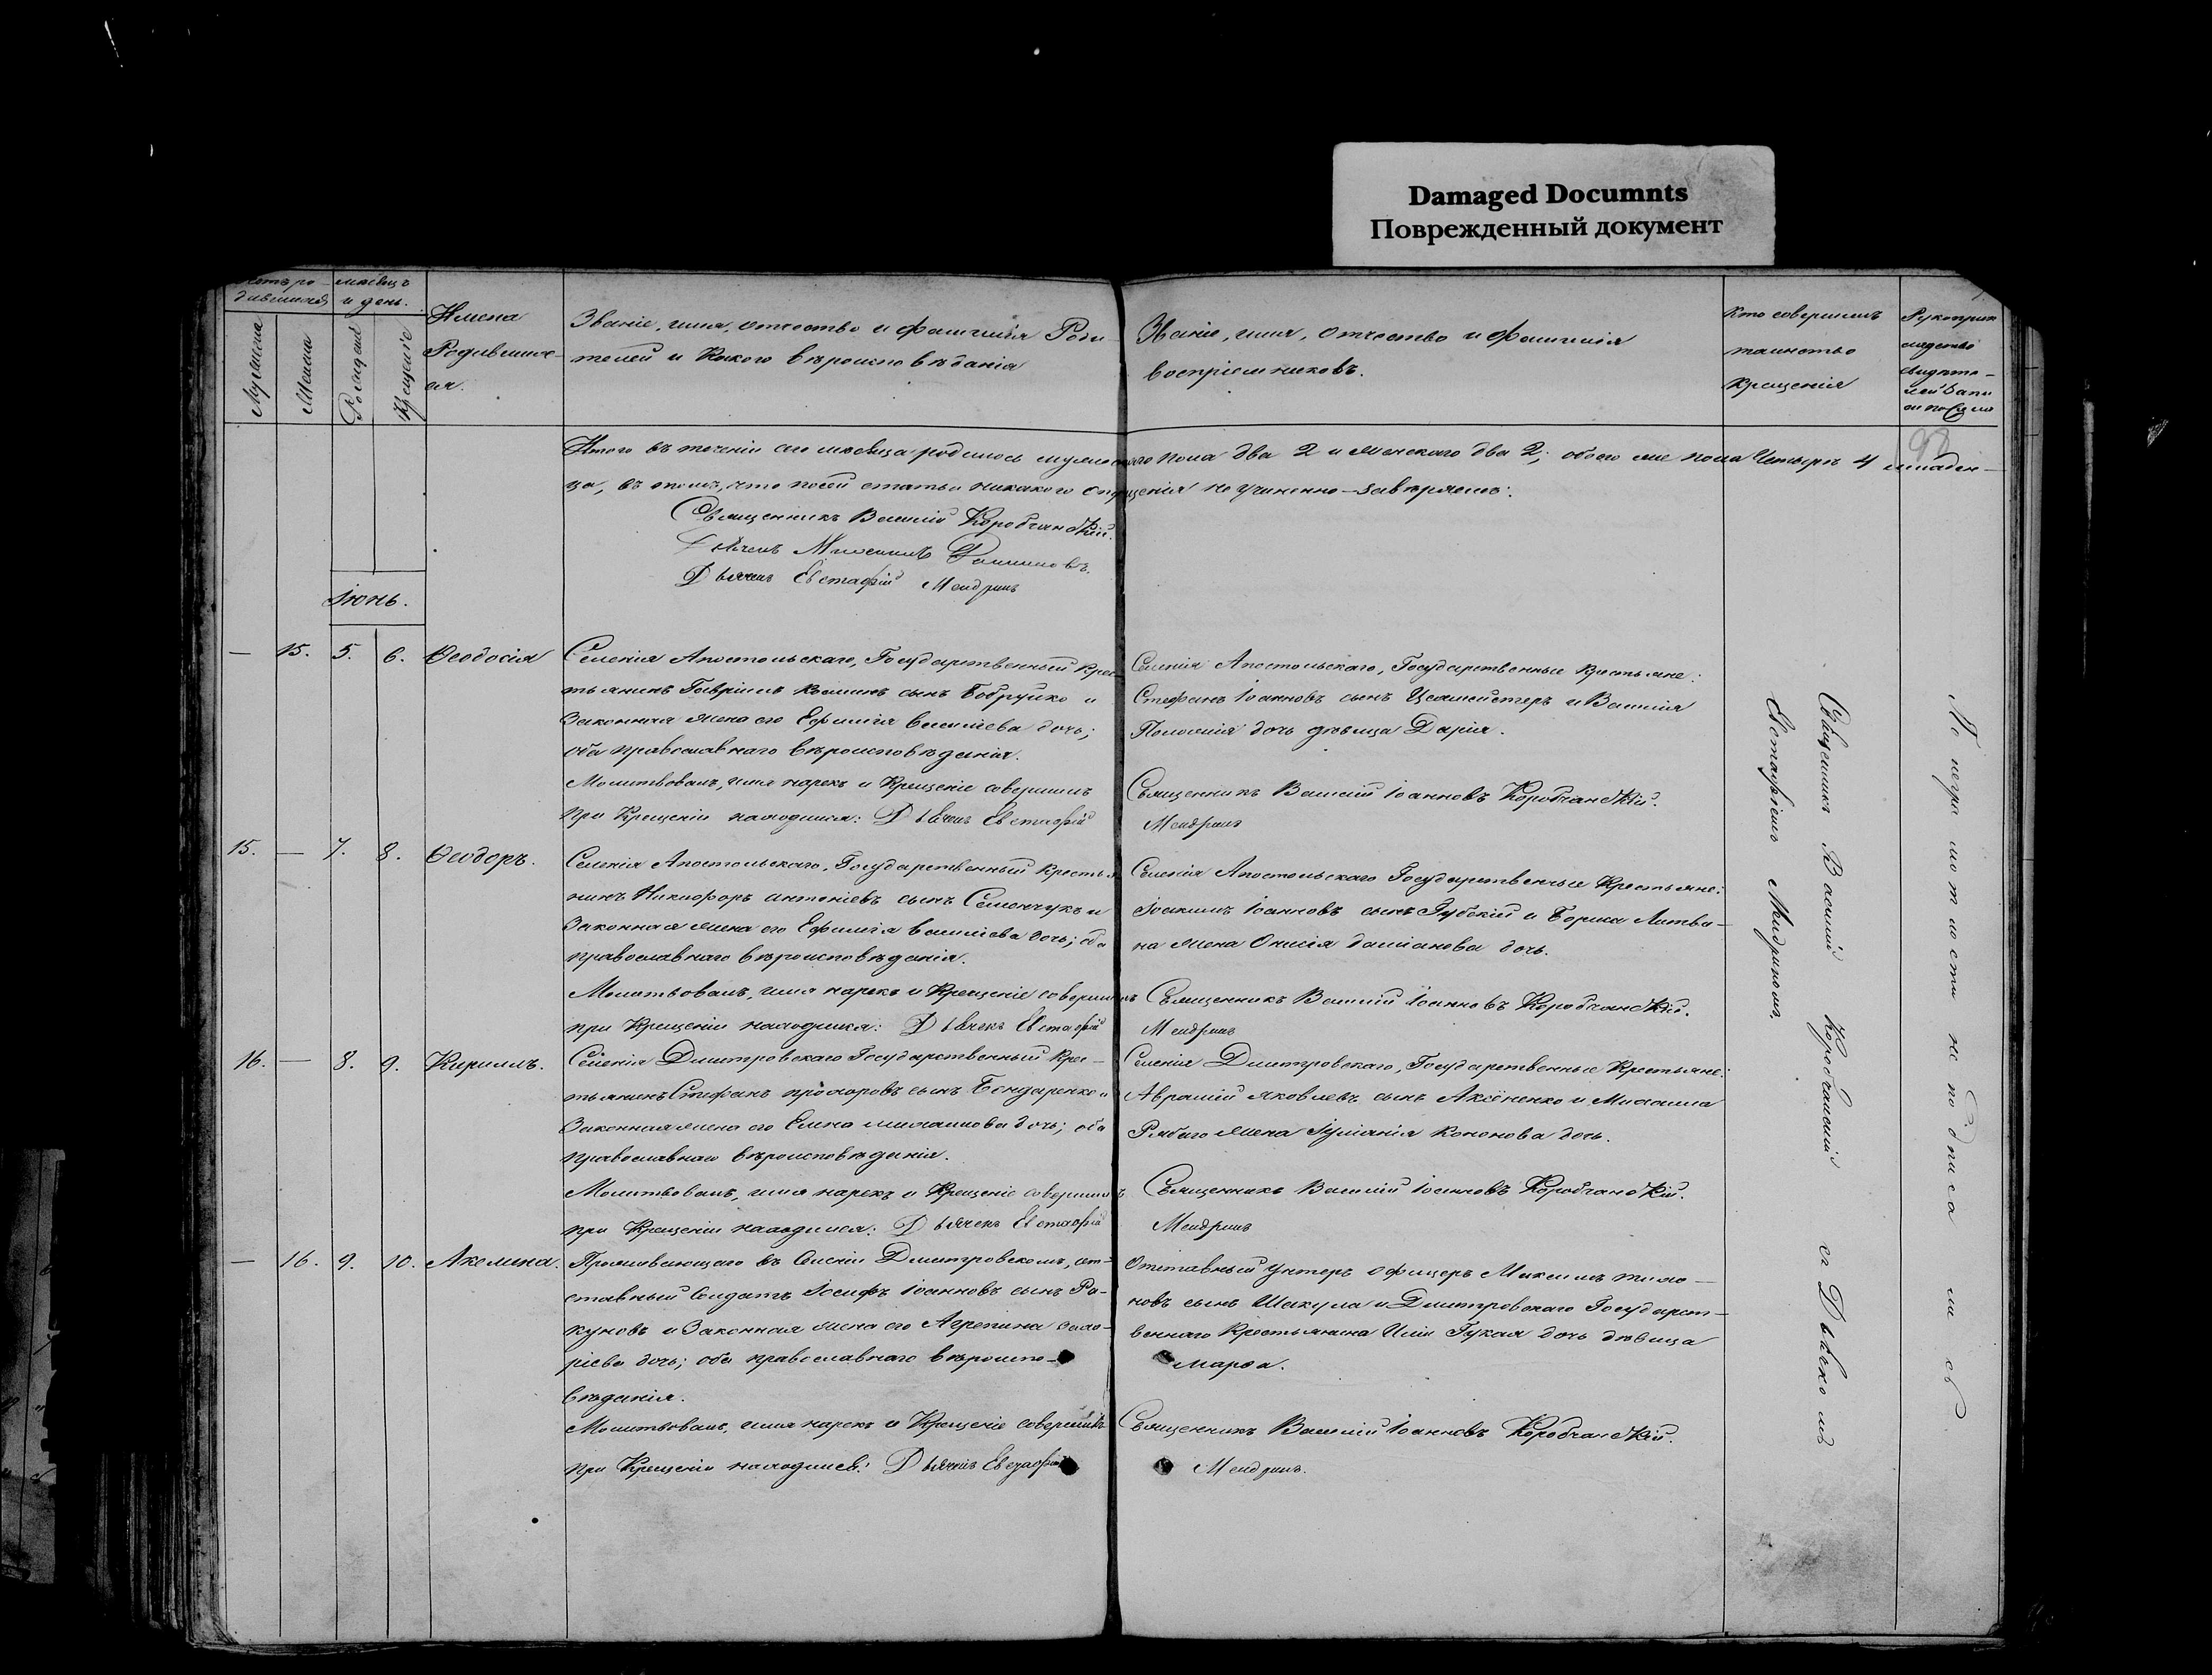 Damaged Documnts
Поврежденный документ
Счетъ ро-
дившихся
мѣсяцъ
и день.
Мужеска
Женска
Рожденія
Крещеніе
Имена
Родивших-
ся.
Званіе, имя, отчество и фамилія Роди-
телей и Какого вѣроисповѣданія
Званіе, имя, Отчество и фамилія
воспріемниковъ.
Кто совершилъ
таинство
Крещенія
98
Итого въ теченіи сего мѣсяца родилось мужескаго пола два 2 и женскаго два 2; обоего же пола Четыре 4 младен-
ца, въ томъ, что посей статьи никакого опущенія не учиненно—завѣряемъ:
Священникъ Василій Коробчанскій.
Дьячекъ
Дьячекъ Евстафій Мендринъ
Іюнь.
— 15. 5. 6. Ѳеодосія
Селенія Апостольскаго, Государственный Крес-
тьянинъ Гавріилъ сынъ Бобруйко и
Законная жена его Ефимія Василіева дочь;
оба православнаго вѣроисповѣданія.
Молитвовалъ, имя нарекъ и Крещеніе совершилъ
при Крещеніи находился: Дьячекъ Евстафій
Селенія Апостольскаго, Государственные Крестьяне:
Стефанъ Іоанновъ сынъ и Василія
дочь дѣвица Дарія.
Священникъ Василій Іоанновъ Коробчанскій.
Мендринъ
15. — 7. 8. Ѳеодоръ.
Селенія Апостольскаго, Государственный Крестья-
нинъ Никифоръ антоніевъ сынъ Семенчукъ и
Законная жена его Ефимія Василіева дочь; оба
православнаго вѣроисповѣданія.
Молитвовалъ, имя нарекъ и Крещеніе совершилъ
при Крещеніи находился: Дьячекъ Евстафій
Селенія Апостольскаго Государственные Крестьяне:
Іоакимъ Іоанновъ сынъ Губскій и Бориса Литви-
на жена Онисія даміанова дочь.
Священникъ Василій Іоанновъ Коробчанскій.
Мендринъ
16. — 8. 9. Кириллъ.
Селенія Дмитровскаго Государственный Крес-
тьянинъ Стефанъ прохоровъ сынъ Бондаренко и
Законная жена его Елена михаилова дочь; оба
православнаго вѣроисповѣданія.
Молитвовалъ, имя нарекъ и Крещеніе совершилъ
при Крещеніи находился: Дьячекъ Евстафій
Селенія Дмитровскаго, Государственные Крестьяне:
Аврамій яковлевъ сынъ Аксёненко и Михаила
Рябаго жена Іуліанія Кононова дочь.
Священникъ Василій Іоанновъ Коробчанскій.
Мендринъ
— 16. 9. 10. Акелина.
Проживающаго въ Селеніи Дмитровскомъ, от-
ставный Солдатъ Іосифъ Іоанновъ сынъ Ра-
куновъ и Законная жена его Агрепина
дочь; оба православнаго вѣроиспо-
вѣданія.
Молитвовалъ, имя нарекъ и Крещеніе совершилъ
при Крещеніи находился: Дьячекъ Евстафій
Отставный Унтеръ офицеръ Максимъ тихо-
новъ сынъ Шакула и Дмитровскаго Государст-
веннаго Крестьянина Иліи Гукая дочь дѣвица
Марѳа.
Священникъ Василій Іоанновъ Коробчанскій.
Мендринъ.
Священникъ Василій Коробчанскій съ Дьячкомъ
Евстафіемъ Мендриномъ
По неграмотности не подписались